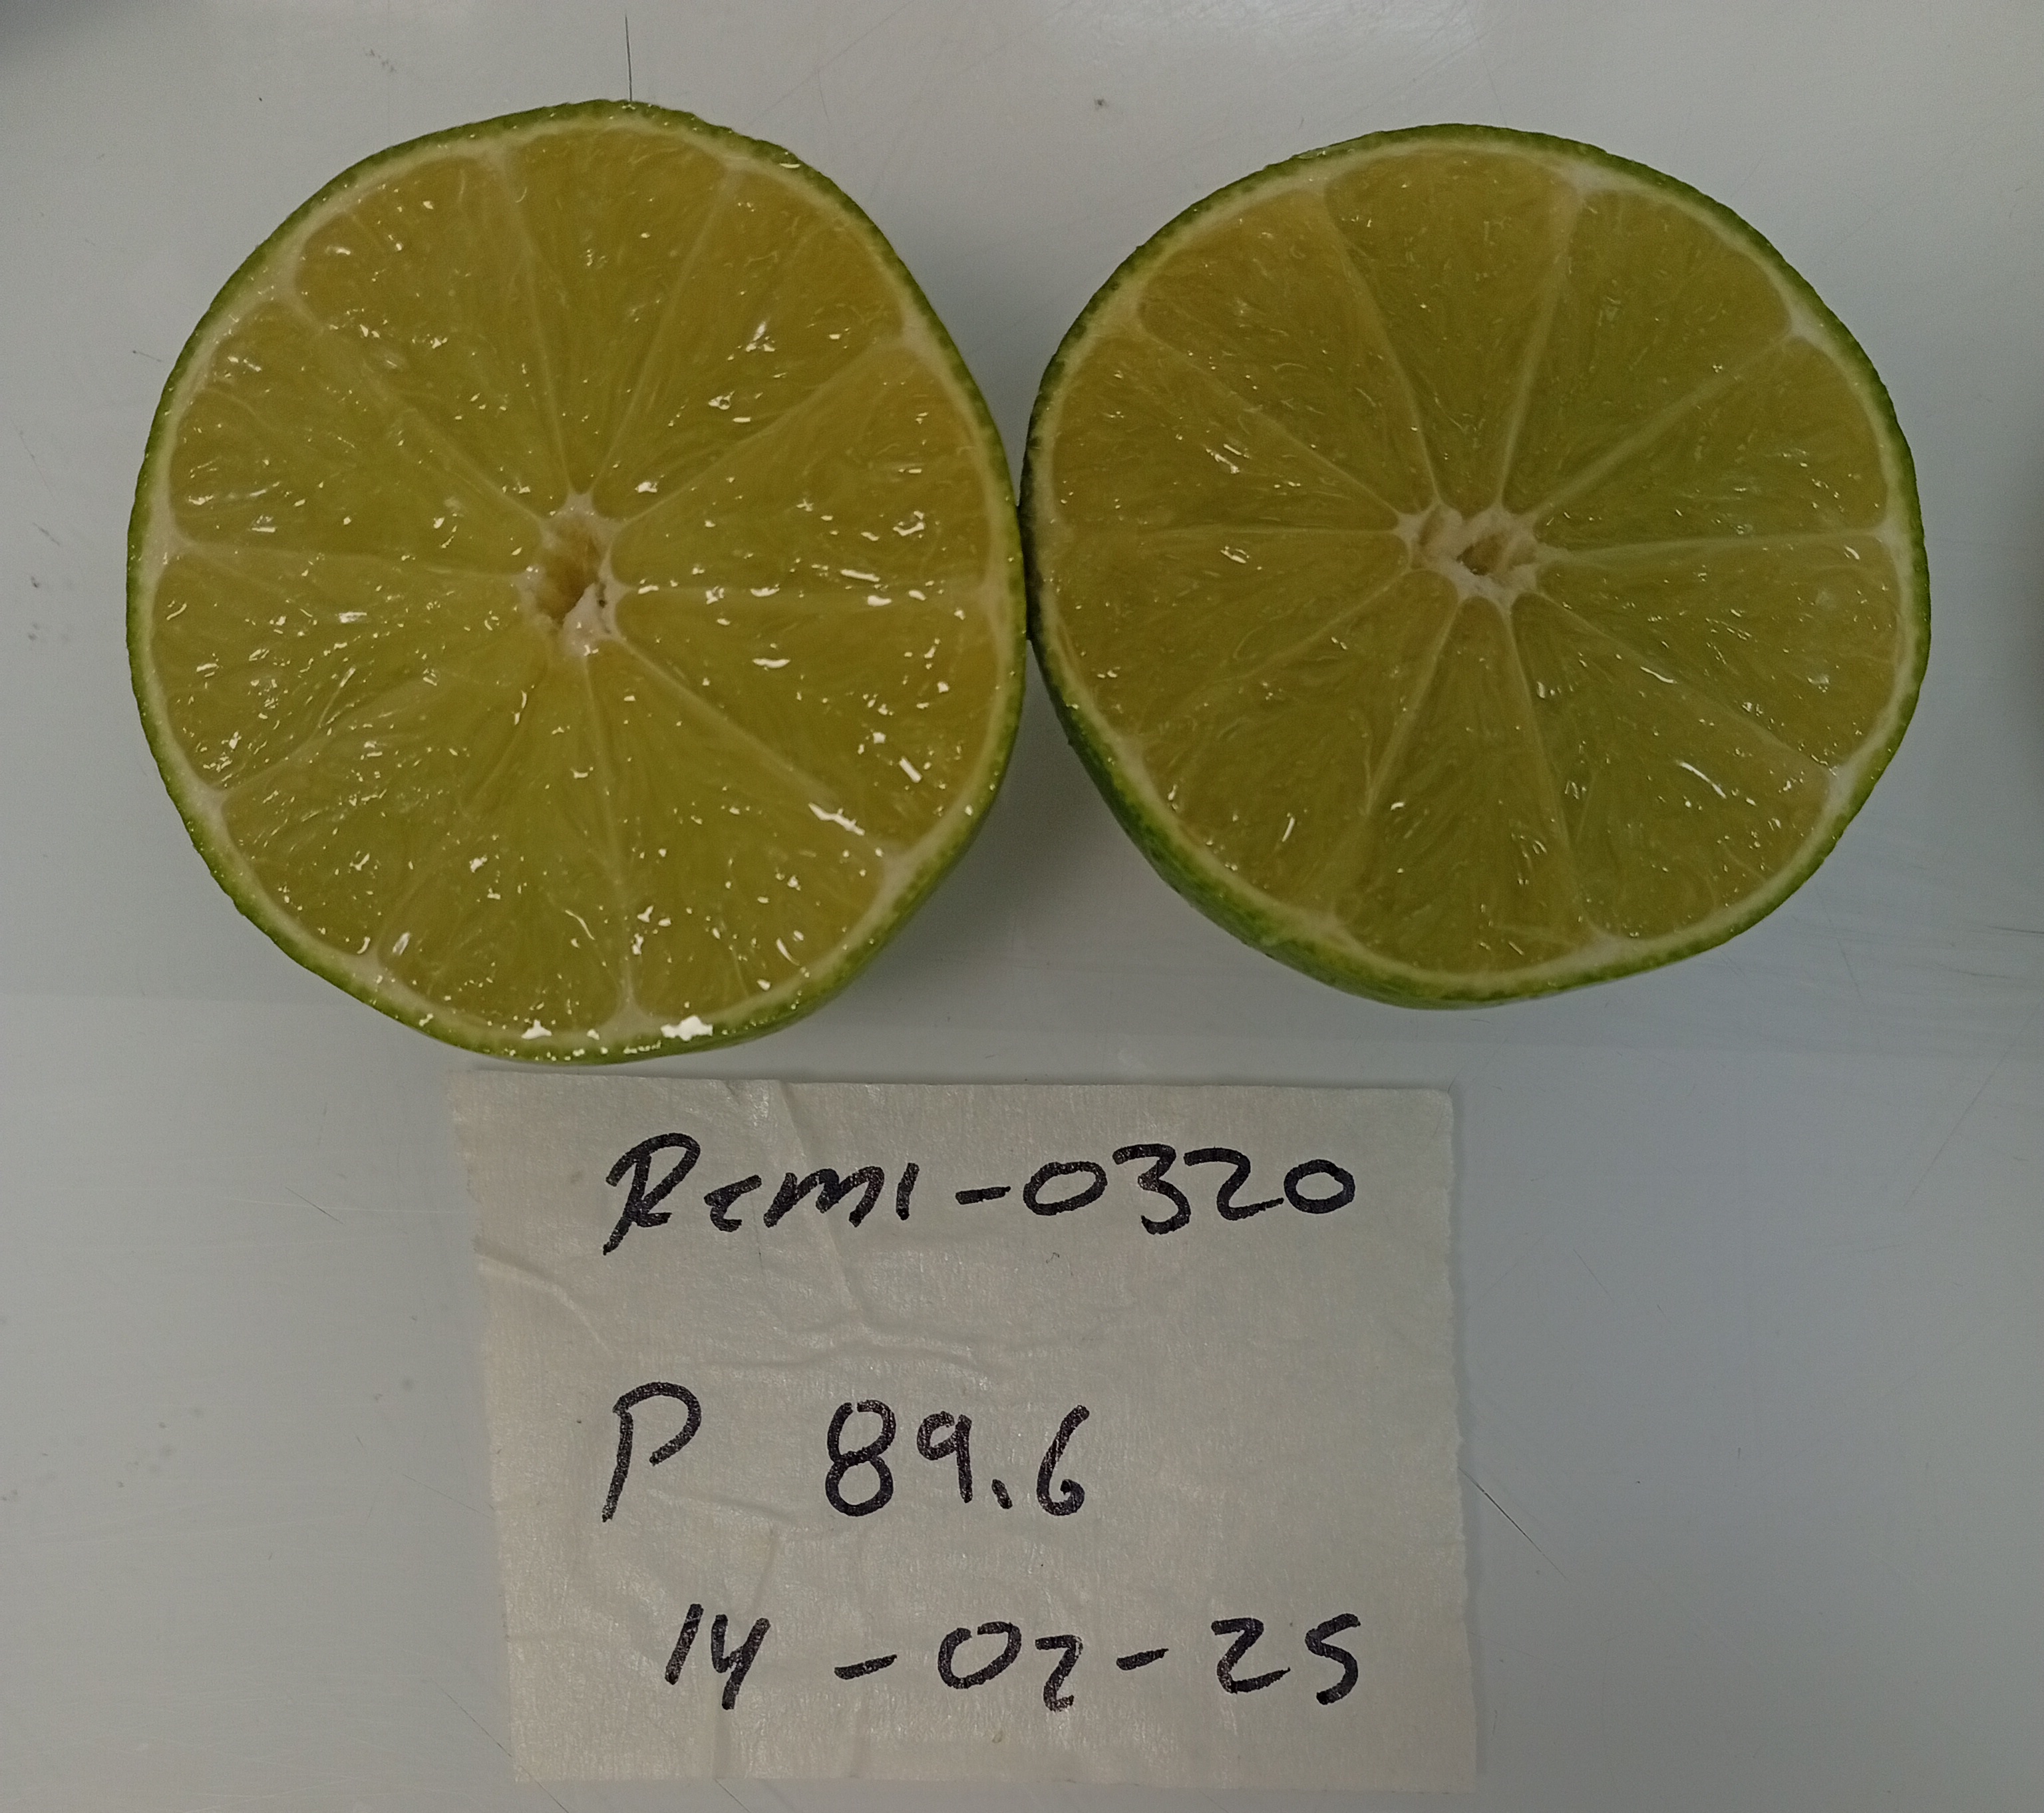 Remi-0320
P 89.6
14-02-25